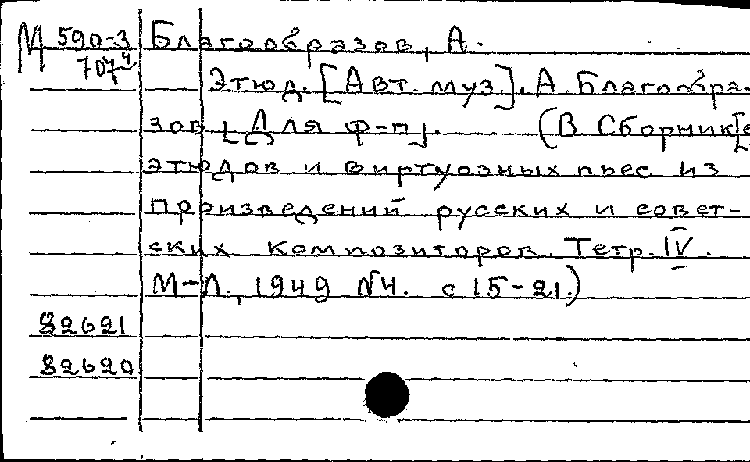 М 590-3 Благообразов, А.
707ч Этюд. [Авт. муз]. А Благообра-
зов [Для ф-п]. (В Сборник[е
этюдов и виртуозных пьес из
произведений русских и совет-
ских композиторов. Тетр. IV.
М-Л., 1949 №4. с 15-21.)
82621
82620